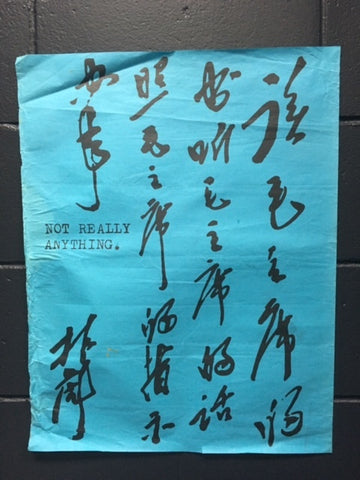 读毛主席的
书听毛主席的话
照毛主席的指示
办事
林彪
NOT REALLY
ANYTHING.